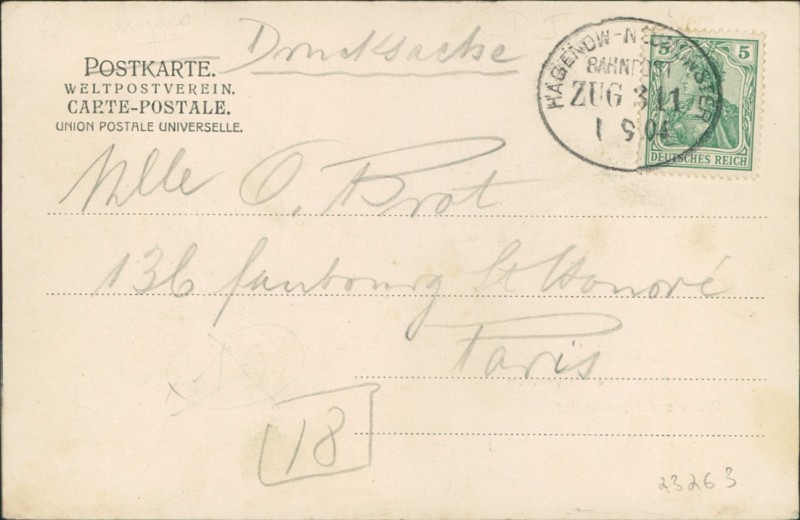 Drucksache
POSTKARTE.
WELTPOSTVEREIN.
CARTE-POSTALE.
UNION POSTALE UNIVERSELLE.
HAGENOW-NEUMÜNSTER
BAHNPOST
ZUG 311
1 9 04
5 5
DEUTSCHES REICH
Mlle O. Brot
136 faubourg St Honoré
Paris
18
23263